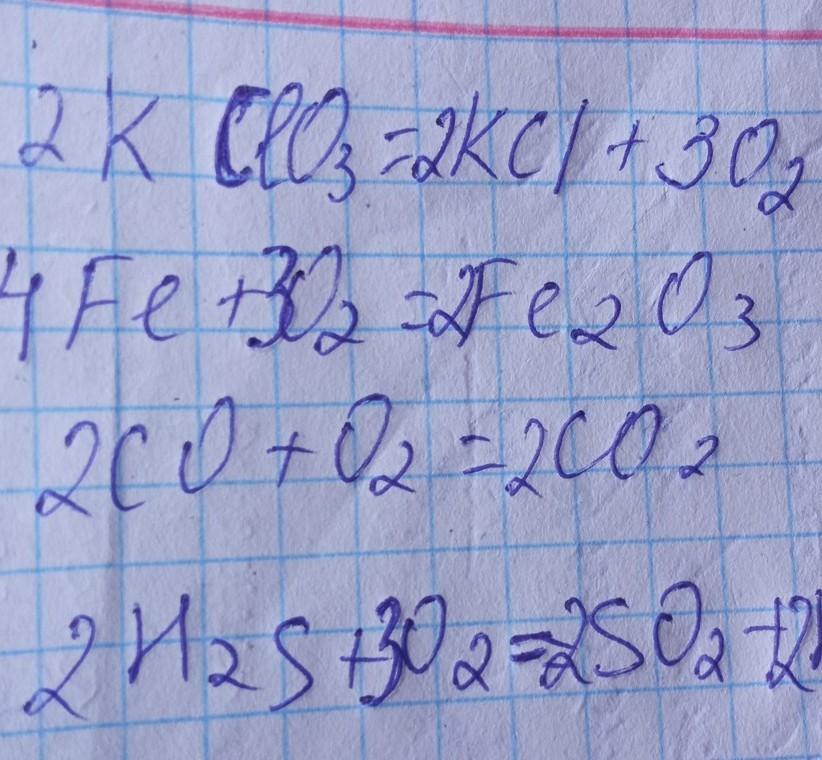 2KClO₃=2KCl+3O₂
4Fe+3O₂=2Fe₂O₃
2CO+O₂=2CO₂
2H₂S+3O₂=2SO₂+2